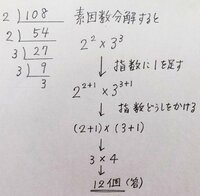 2) 108
2) 54
3) 27
3) 9
3
素因数分解すると
2² × 3³
↓ 指数に1を足す
2²⁺¹ × 3³⁺¹
↓ 指数どうしをかける
(2+1) × (3+1)
↓
3 × 4
↓
12個 (答)